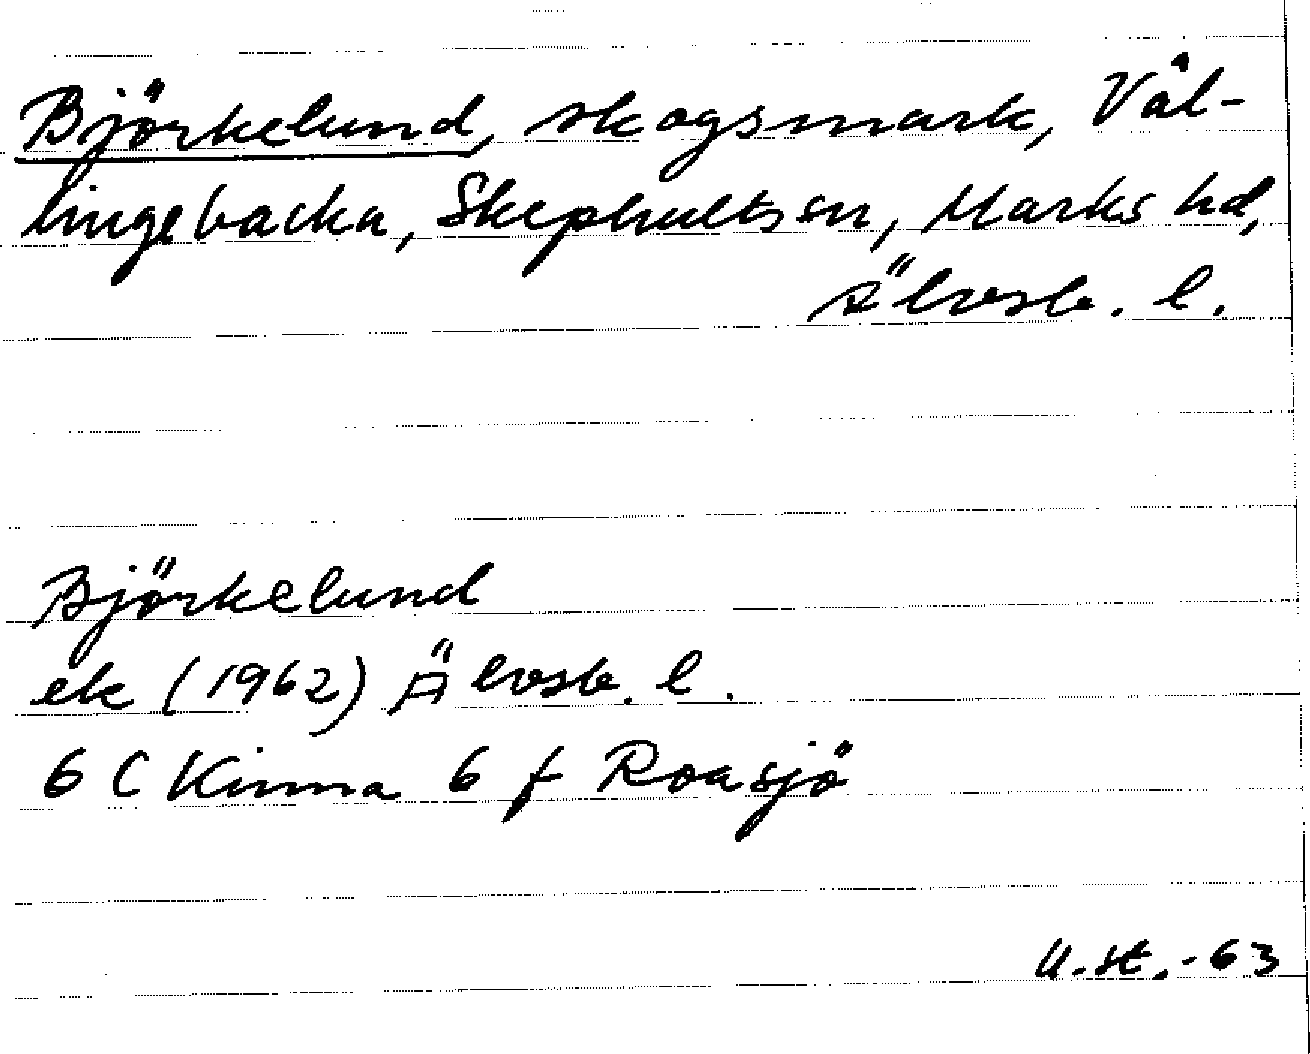 Björkelund, skogsmark, Väl-
lingebacka, Skephults sn, Marks hd,
Älvsb. l.
Björkelund
ek (1962) Älvsb. l.
6 C Kinna 6 f Roasjö
U.st.-63